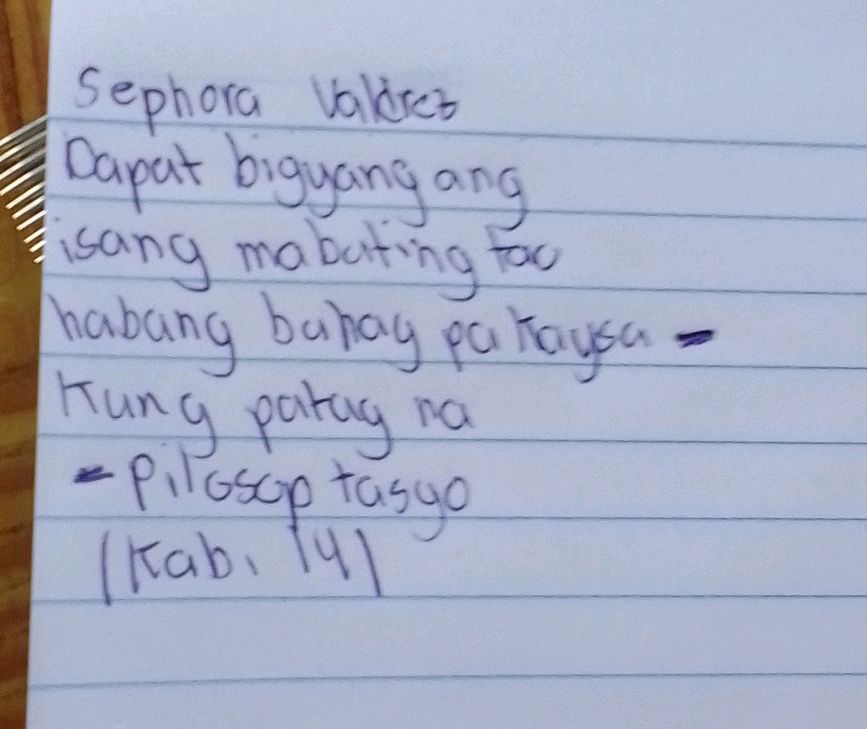 Sephora Valdrez
Dapat bigyang ang
isang mabuting tao
habang buhay pa kaysa -
Kung patag na
- Pilosop tasyo
(Kab. 14)